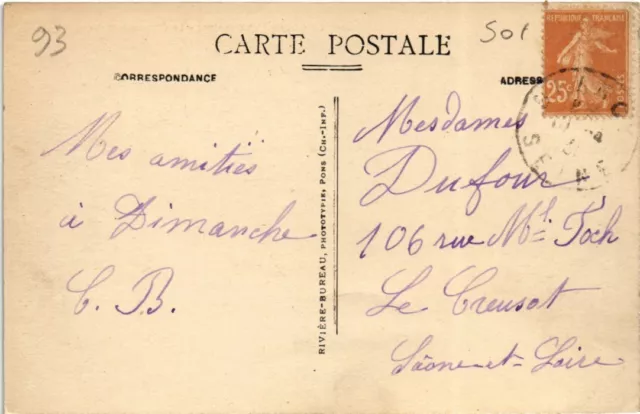 93
501
CARTE POSTALE
CORRESPONDANCE
ADRESSE
REPUBLIQUE FRANÇAISE
25c
POSTES
Mes amitiés
à Dimanche
C. B.
RIVIÈRE-BUREAU, PHOTOTYPIE, PONS (CH.-INF.)
Mesdames
Dufour
106 rue Mal Foch
Le Creusot
Sâone-et-Loire